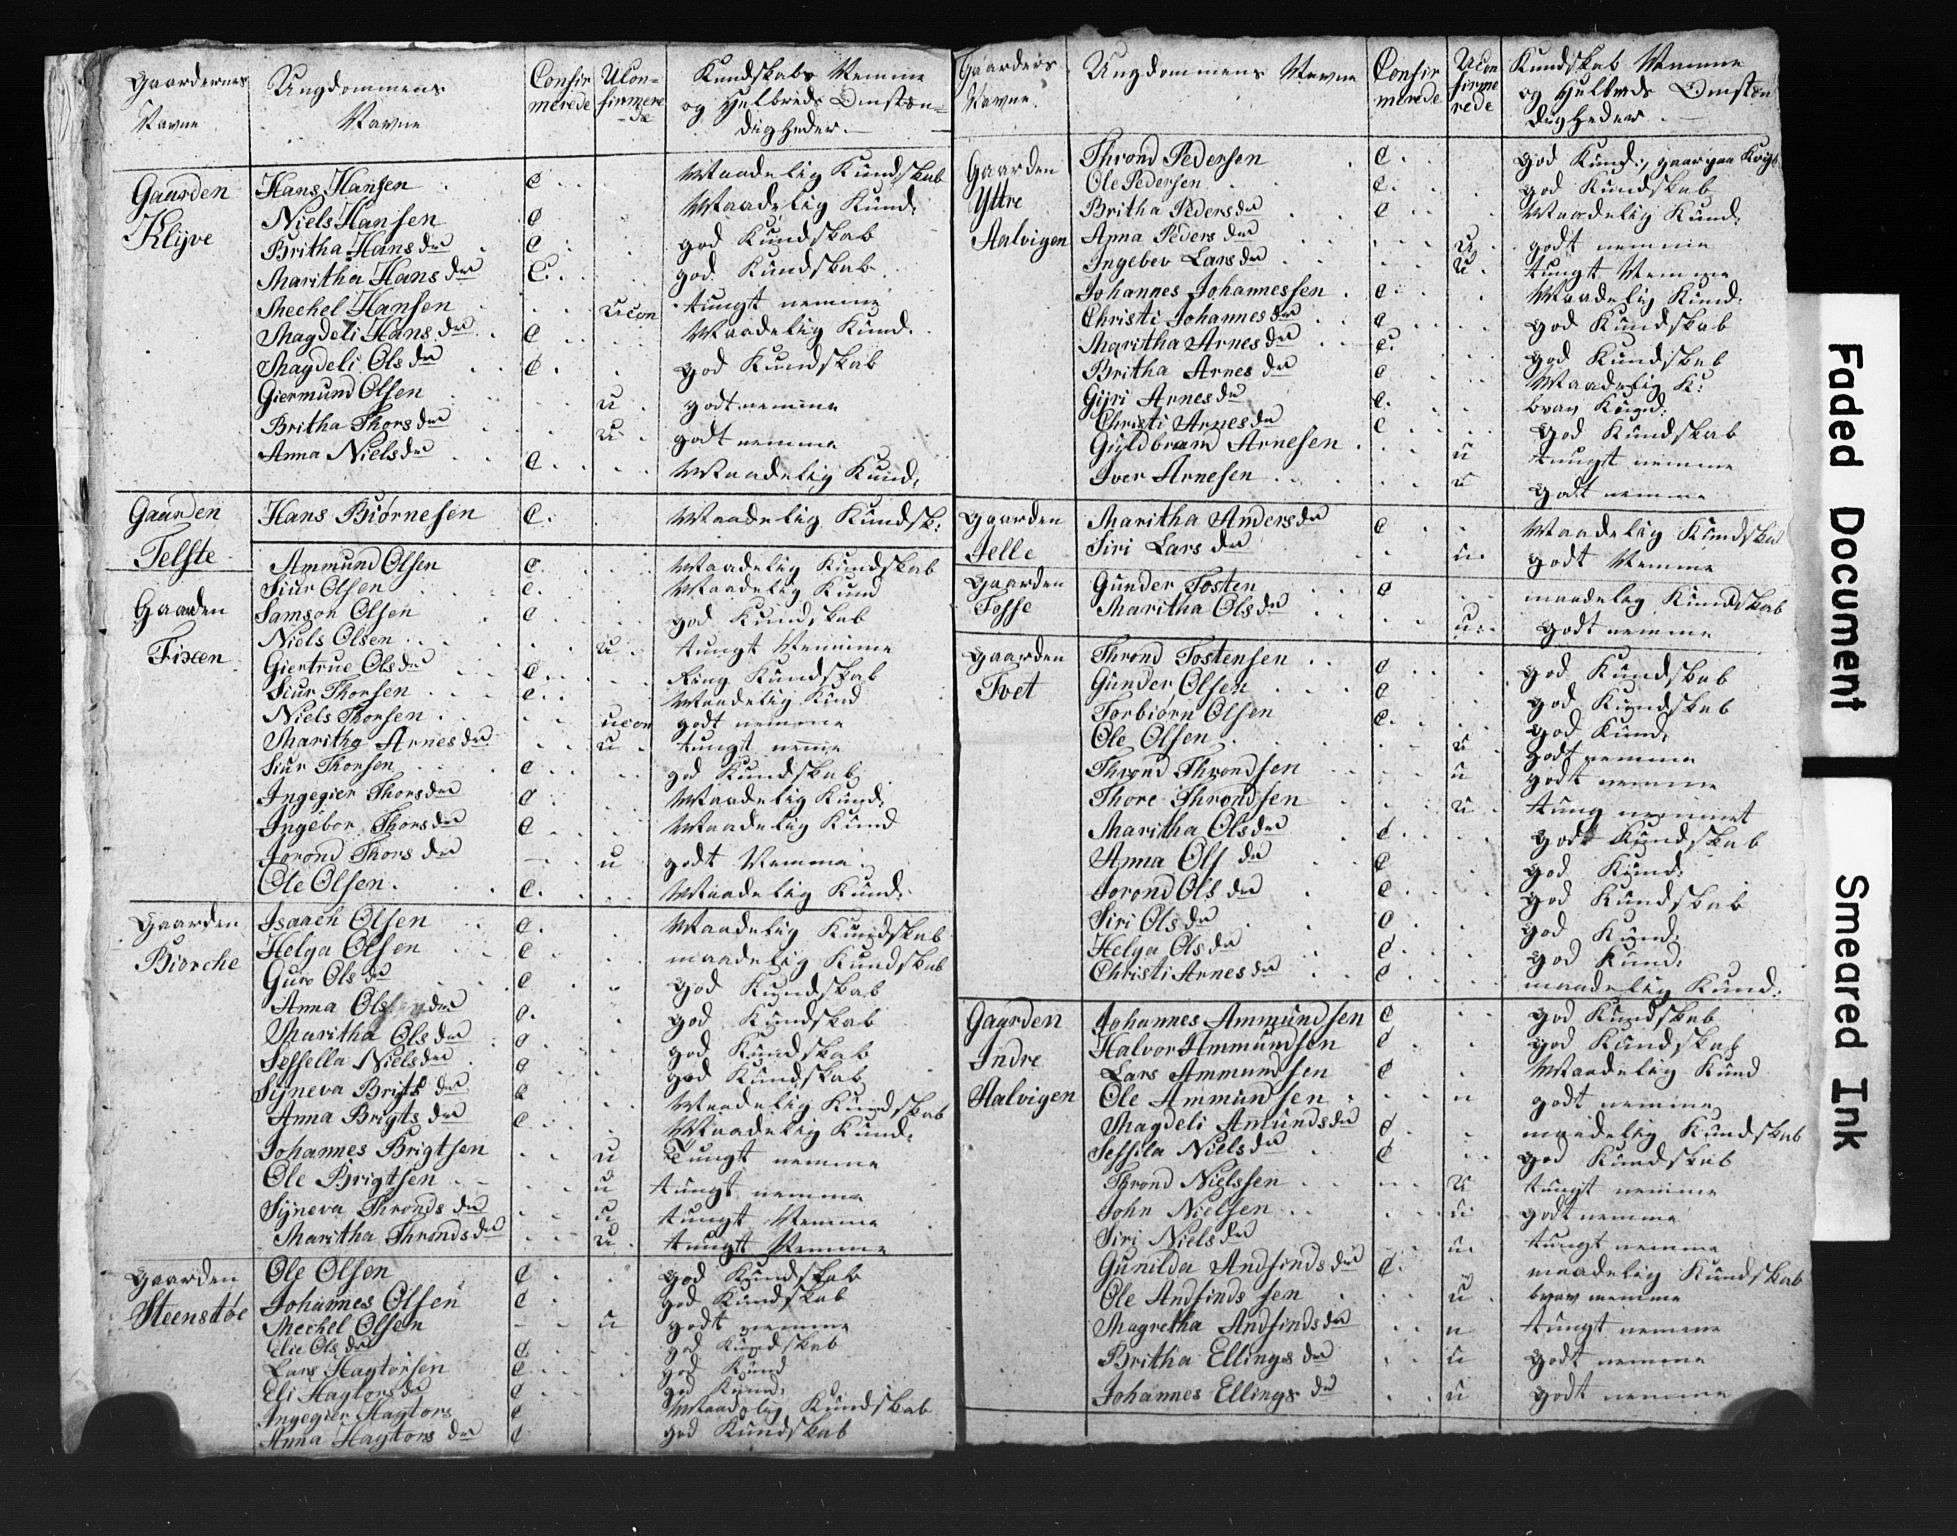 Gaardernes Navne | Ungdommens Navne | Confirmerede | Uconfirmerede | Kundskabs Nemme og Helbreds Omstændigheder.
Gaarden Klÿve | Hans Hansen | C | | Maadelig Kundskab
Niels Hansen | C | | Maadelig Kund:
Britha Hansdr | C | | god Kundskab
Maritha Hansdr | C | | god Kundskab
Mechel Hansen | | Ucon | tungt nemme
Magdeli Hansdr | C | | Maadelig Kund.
Magdeli Olsdr | C | | god Kundskab
Giermund Olsen | | u | godt nemme
Britha Thorsdr | | u | godt nemme
Anna Nielsdr | C | | Maadelig Kund:
Gaarden Telste | Hans Biørnesen | C | | Maadelig Kundsk:
Gaarden Fixen | Ammund Olsen | C | | Maadelig Kundskab
Siur Olsen | C | | Maadelig Kund
Samson Olsen | C | | god Kundskab
Niels Olsen | | u | tungt Nemme
Giertrue Olsdr | C | | Ring Kundskab
Siur Thorsen | C | | Maadelig Kund
Niels Thorsen | | ucon | godt nemme
Maritha Arnesdr | | u | tungt neme
Siur Thorsen | C | | god Kundskab
Ingegier Thorsdr | C | | Maadelig Kund:
Ingebor Thorsdr | C | | Maadelig Kund
Jorond Thorsdr | | u | godt Nemme
Ole Olsen | C | | Maadelig Kund:
Gaarden Biørche | Isaach Olsen | C | | Maadelig Kundskab
Helga Olsen | C | | maadelig Kundskab
Guro Olsdr | C | | God Kundskab
Anna Olsdr | C | | god Kundskab
Maritha Olsdr | C | | god Kundskab
Sessella Nielsdr | C | | god Kundskab
Sÿneva Brigtsdr | C | | Maadelig Kundskab
Anna Brigtsdr | C | | Maadelig Kund:
Johannes Brigtsen | | u | Tungt nemme
Ole Brigtsen | | u | tungt nemme
Sÿneva Throndsdr | | u | tungt Nemme
Maritha Throndsdr | | u | tungt Nemme
Gaarden Steenstøe | Ole Olsen | C | | god Kundskab
Johannes Olsen | C | | god Kundskab
Mechel Olsen | | u | godt nemme
Elie Olsdr | C | | god Kundskab
Lars Hagtorsen | C | | god Kund
Eli Hagtorsdr | C | | god Kund:
Ingegier Hagtors | C | | Maadelig Kundskab
Anna Hagtorsdr | C | | god Kundskab
Gaarders Navne. | Ungdommens Navne | Confirmerede | Uconfirmerede | Kundskab Nemme og Helbreds Omstændigheder.
Gaarden Yttre Aalvigen | Thrond Pedersen | C | | god Kund:, gaar paa
Ole Pedersen | C | | god Kundskab
Britha Pedersdr | C | | Maadelig Kund:
Anna Pedersdr | | u | godt nemme
Ingebor Larsdr | | u | tungt Nemme
Johannes Johannessen | C | | Maadelig Kund:
Christi Johannesdr | C | | god Kundskab
Maritha Arnesdr | C | | god Kundskab
Britha Arnesdr | C | | Maadelig K:
Gÿri Arnesdr | C | | brav Kund:
Christi Arnesdr | C | | God Kundskab
Guldbrand Arnesen | | u | tungt nemme
Iver Arnesen | | u | Godt nemme
Gaarden Melle | Maritha Andersdr | C | | Maadelig Kundskab
Siri Larsdr | | u | godt Nemme
Gaarden Fosse | Gunder Tosten | C | | maadelig Kundskab
Maritha Olsdr | | u | Godt nemme
Gaarden Tvet | Thrond Tostensen | C | | god Kundskab
Gunder Olsen | C | | god Kundskab
Torbiørn Olsen | C | | God Kund:
Ole Olsen | | u | godt nemme
Thrond Throndsen | | u | godt nemme
Thore Throndsen | | u | tung nemmet
Maritha Olsdr | C | | godt Kundskab
Anna Olsdr | C | | god Kund:
Jorond Olsdr | C | | god Kundskab
Siri Olsdr | C | | god Kund:
Helga Olsdr | C | | god Kund:
Christi Arnesdr | C | | maadelig Kund:
Gaarden Indre Aalvigen | Johannes Ammundsen | C | | god Kundskab
Halvor Ammundsen | C | | god Kundskab
Lars Ammundsen | C | | Maadelig Kund
Ole Ammundsen | | u | godt nemme
Magdeli Amundsdr | C | | maadelig Kundskab
Sessila Nielsdr | C | | god Kundskab
Thrond Nielssen | | u | tungt nemme
John Nielsen | | u | godt nemme
Siri Nielsdr | | u | tungt nemme
Gunilda Andfindsdr | C | | maadelig Kundskab
Ole Andfindssen | | u | brav nemme
Magretha Andfindsdr | | u | tungt nemme
Britha Ellingsdr | | u | godt nemme
Johannes Ellingsdr | | u | godt nemme
Faded Document
Smeared Ink